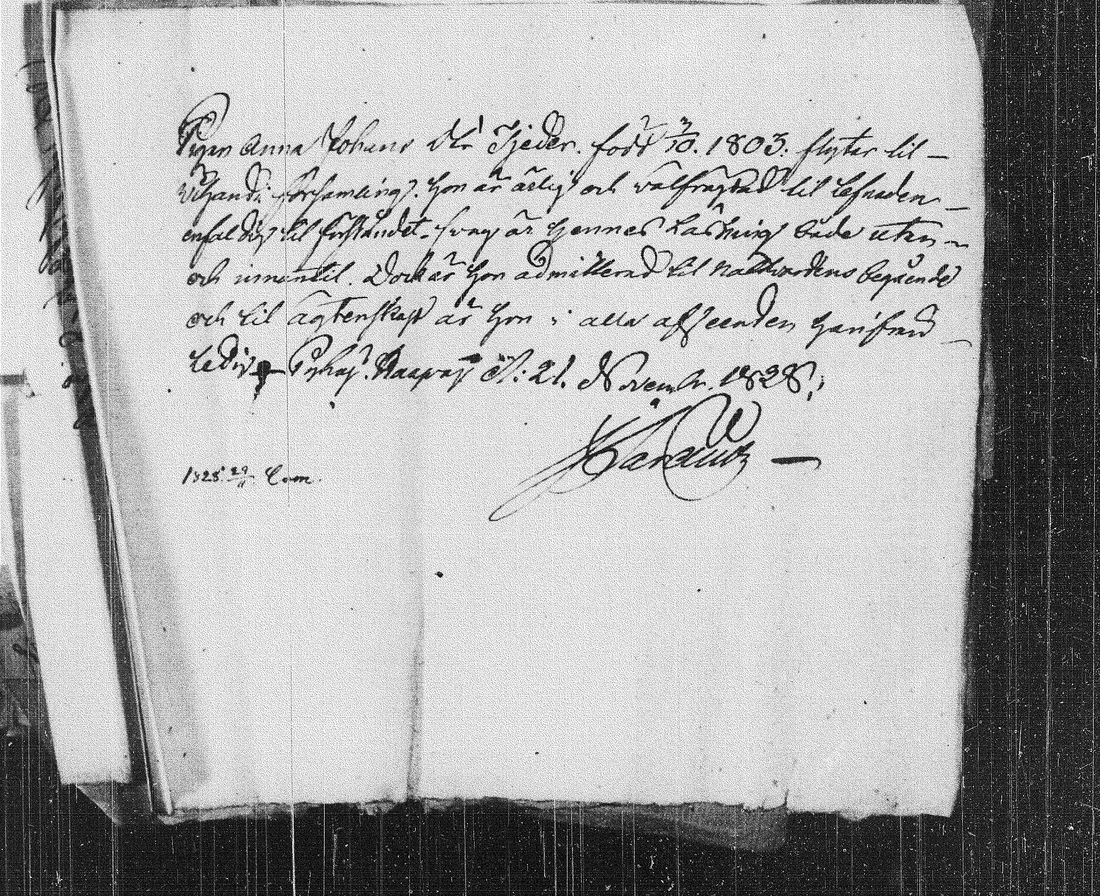 Pigan Anna Johans Dtr Tjeder. född 3/10. 1803. flyttar til
församling. hon är ärlig och välfrägdad til lefnaden
enfaldig til förståndet. svag är hennes läsning både utan-
och innantil. Dock är hon admitterad til nattvardens begående
och til ägtenskap är hon i alla afseenden hanfrau
ledig Pyhäj. Haapaj d: 21. Novembr. 1828.
1828 29/11 Com.